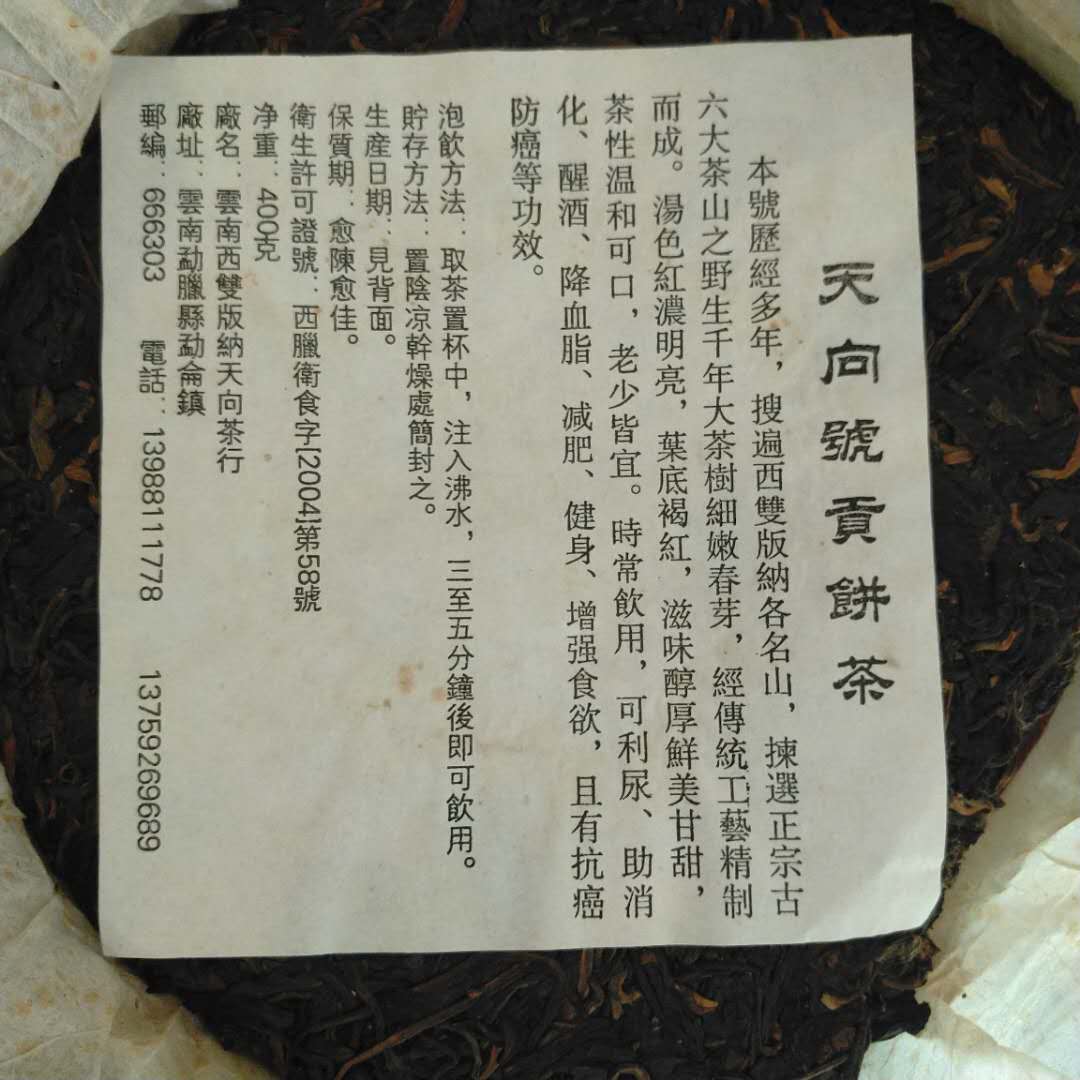 天向號貢餅茶
本號歷經多年，搜遍西雙版納各名山，揀選正宗古
六大茶山之野生千年大茶樹細嫩春芽，經傳統工藝精制
而成。湯色紅濃明亮，葉底褐紅，滋味醇厚鮮美甘甜，
茶性溫和可口，老少皆宜。時常飲用，可利尿、助消
化、醒酒、降血脂、减肥、健身、增强食欲，且有抗癌
防癌等功效。
泡飲方法：取茶置杯中，注入沸水，三至五分鐘後即可飲用。
貯存方法：置陰凉幹燥處簡封之。
生産日期：見背面。
保質期：愈陳愈佳。
衛生許可證號：西臘衛食字[2004]第58號
净重：400克
廠名：雲南西雙版納天向茶行
廠址：雲南勐臘縣勐侖鎮
郵編：666303 電話：13988111778 13759269689